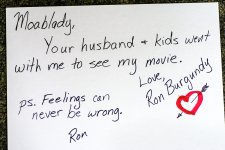 Moablady,
Your husband + kids went
with me to see my movie.
Love,
Ron Burgundy
ps. Feelings can
never be wrong.
Ron